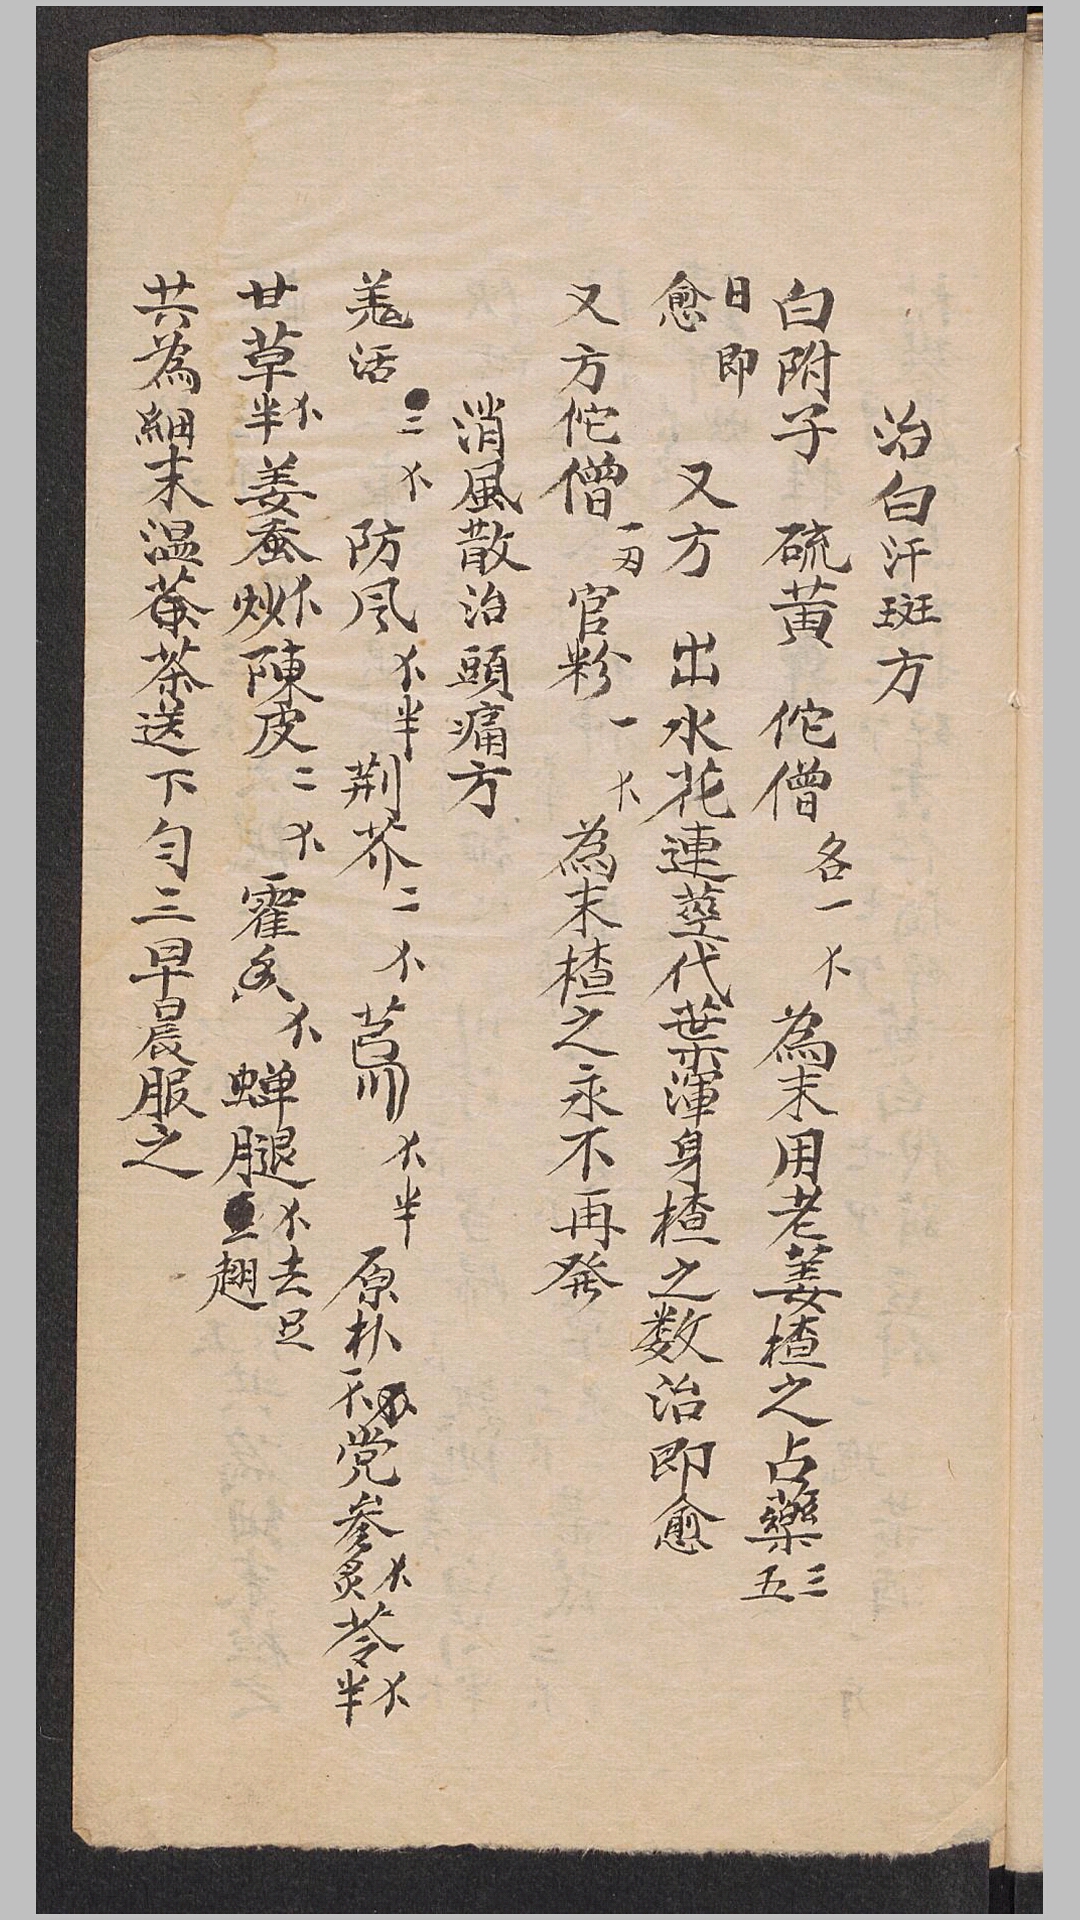 治白汗斑方
白附子 硫黄 佗僧 各一不 為末用老姜楂之占藥三五
日即愈 又方 出水花連莖代葉渾身楂之数治即愈
又方佗僧一刃 官粉一不 為末楂之永不再発
消風散治頭痛方
羗活三不 防风不半 荆芥二不 芎川不半 原朴不 党参不 炙苓不半
甘草不半 姜蚕炒不 陳皮二不 霍香不 蝉腿不去足翅
共為細末温茶送下匀三早晨服之